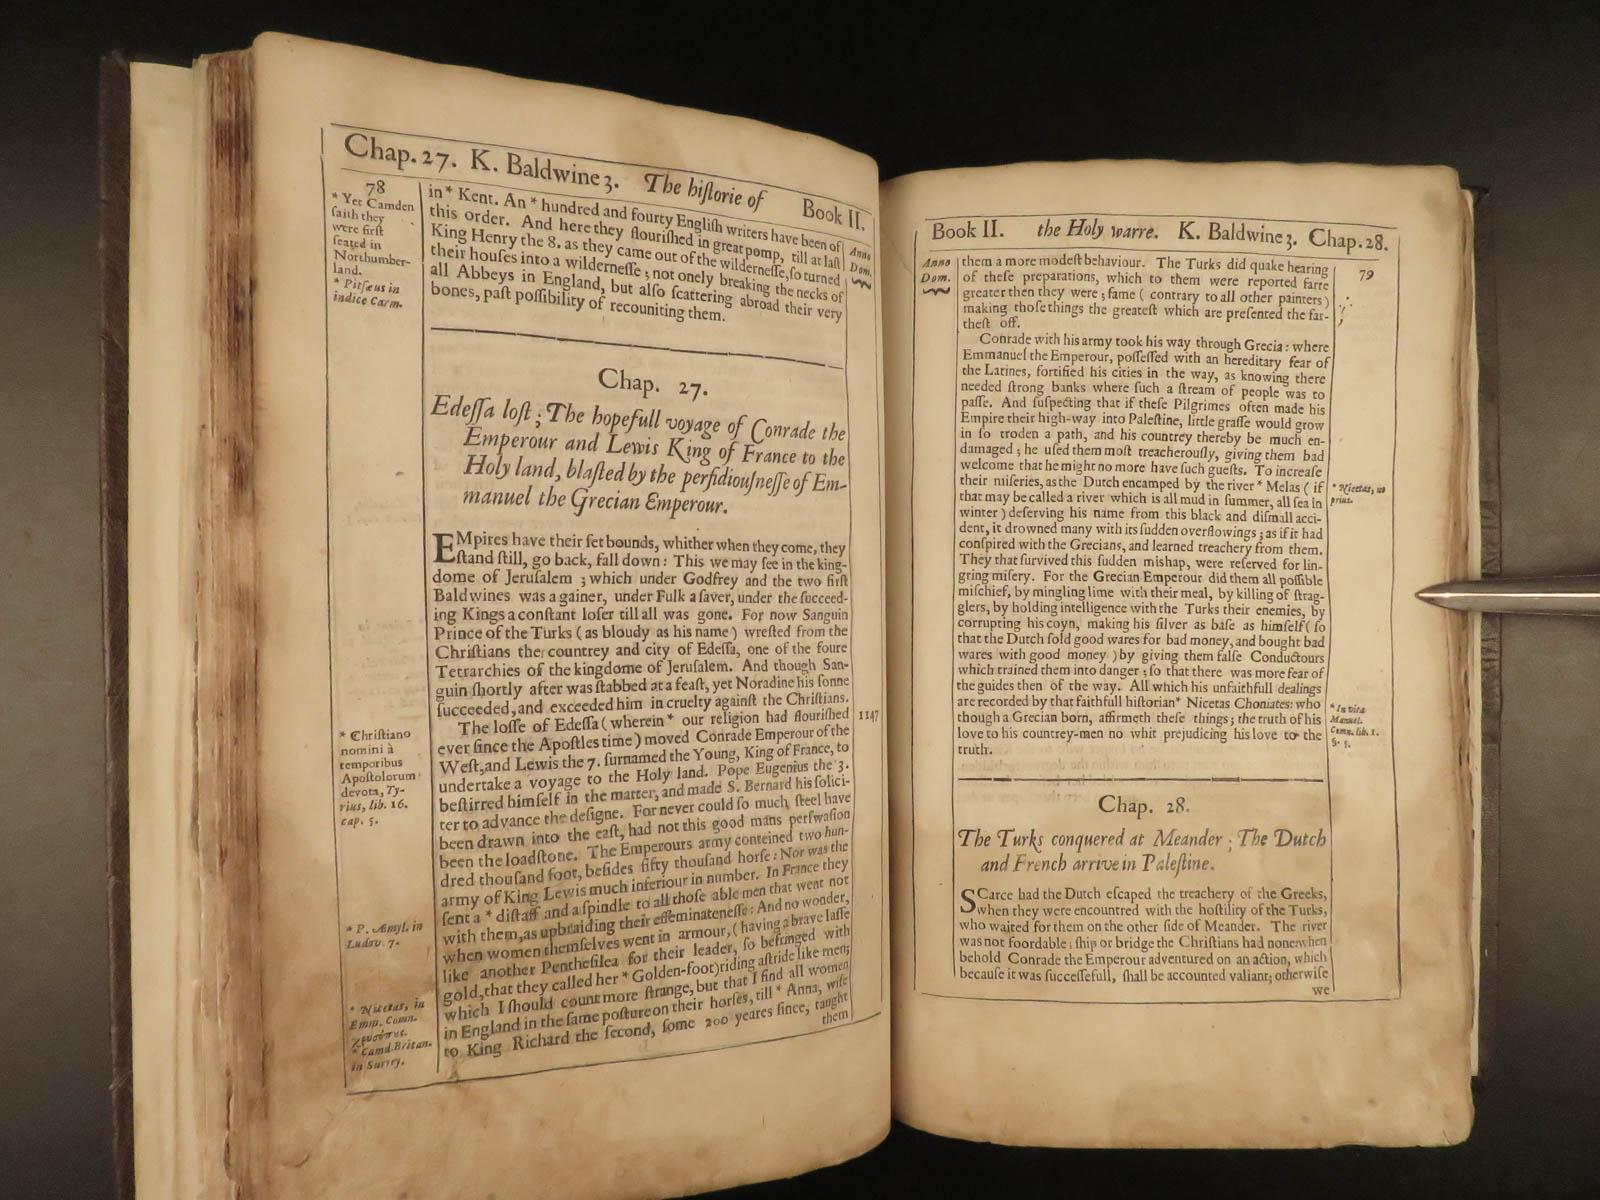 Chap. 27. K. Baldwine 3. The hiſtorie of Book II.
78
* Yet Camden
ſaith they
were firſt
ſeated in
Northumber-
land.
* Pitſæus in
indice Carm.
in * Kent. An * hundred and fourty Engliſh writers have been of
this order. And here they flouriſhed in great pomp, till at laſt
King Henry the 8. as they came out of the wilderneſſe, ſo turned
their houſes into a wilderneſſe; not onely breaking the necks of
all Abbeys in England, but alſo ſcattering abroad their very
bones, paſt poſſibility of recouniting them.
Anno
Dom.
Chap. 27.
Edeſſa loſt; The hopefull voyage of Conrade the
Emperour and Lewis King of France to the
Holy land, blaſted by the perfidiouſneſſe of Em-
manuel the Grecian Emperour.
EMpires have their ſet bounds, whither when they come, they
ſtand ſtill, go back, fall down: This we may ſee in the king-
dome of Jeruſalem; which under Godfrey and the two firſt
Baldwines was a gainer, under Fulk a ſaver, under the ſucceed-
ing Kings a conſtant loſer till all was gone. For now Sanguin
Prince of the Turks (as bloudy as his name) wreſted from the
Chriſtians the countrey and city of Edeſſa, one of the foure
Tetrarchies of the kingdome of Jeruſalem. And though San-
guin ſhortly after was ſtabbed at a feaſt, yet Noradine his ſonne
ſucceeded, and exceeded him in cruelty againſt the Chriſtians.
The loſſe of Edeſſa (wherein * our religion had flouriſhed
ever ſince the Apoſtles time) moved Conrade Emperour of the
Weſt, and Lewis the 7. ſurnamed the Young, King of France, to
undertake a voyage to the Holy land. Pope Eugenius the 3.
beſtirred himſelf in the matter, and made S. Bernard his ſolici-
ter to advance the deſigne. For never could ſo much ſteel have
been drawn into the eaſt, had not this good mans perſwaſion
been the loadſtone. The Emperours army conteined two hun-
dred thouſand foot, beſides fifty thouſand horſe: Nor was the
army of King Lewis much inferiour in number. In France they
ſent a * diſtaff and a ſpindle to all thoſe able men that went not
with them, as upbraiding their effeminateneſſe: And no wonder,
when women themſelves went in armour, (having a brave laſſe
like another Pentheſilea for their leader, ſo befringed with
gold, that they called her * Golden-foot) riding aſtride like men;
which I ſhould count more ſtrange, but that I find all women
in England in the ſame poſture on their horſes, till * Anna, wife
to King Richard the ſecond, ſome 200 yeares ſince, taught
them
1147
* Chriſtiano
nomini à
temporibus
Apoſtolorum
devota, Ty-
rius, lib. 16.
cap. 5.
* P. Æmyl. in
Ludov. 7.
* Nicetas, in
Emm. Comn.
* Camd. Britan.
in Surrey.
Book II. the Holy warre. K. Baldwine 3. Chap. 28.
79
Anno
Dom.
them a more modeſt behaviour. The Turks did quake hearing
of theſe preparations, which to them were reported farre
greater then they were; fame (contrary to all other painters)
making thoſe things the greateſt which are preſented the far-
theſt off.
Conrade with his army took his way through Grecia: where
Emmanuel the Emperour, poſſeſſed with an hereditary fear of
the Latines, fortified his cities in the way, as knowing there
needed ſtrong banks where ſuch a ſtream of people was to
paſſe. And ſuſpecting that if theſe Pilgrimes often made his
Empire their high-way into Paleſtine, little graſſe would grow
in ſo troden a path, and his countrey thereby be much en-
damaged; he uſed them moſt treacherouſly, giving them bad
welcome that he might no more have ſuch gueſts. To increaſe
their miſeries, as the Dutch encamped by the river * Melas (if
that may be called a river which is all mud in ſummer, all ſea in
winter) deſerving his name from this black and diſmall acci-
dent, it drowned many with its ſudden overflowings; as if it had
conſpired with the Grecians, and learned treachery from them.
They that ſurvived this ſudden miſhap, were reſerved for lin-
gring miſery. For the Grecian Emperour did them all poſſible
miſchief, by mingling lime with their meal, by killing of ſtrag-
glers, by holding intelligence with the Turks their enemies, by
corrupting his coyn, making his ſilver as baſe as himſelf (ſo
that the Dutch ſold good wares for bad money, and bought bad
wares with good money) by giving them falſe Conductours
which trained them into danger; ſo that there was more fear of
the guides then of the way. All which his unfaithfull dealings
are recorded by that faithfull hiſtorian * Nicetas Choniates: who
though a Grecian born, affirmeth theſe things; the truth of his
love to his countrey-men no whit prejudicing his love to the
truth.
* Nicetas, ut
prius.
* In vita
Manuel.
Comn. lib. 1.
§. 5.
Chap. 28.
The Turks conquered at Meander; The Dutch
and French arrive in Paleſtine.
SCarce had the Dutch eſcaped the treachery of the Greeks,
when they were encountred with the hoſtility of the Turks,
who waited for them on the other ſide of Meander. The river
was not foordable; ſhip or bridge the Chriſtians had none: when
behold Conrade the Emperour adventured on an action, which
becauſe it was ſucceſſefull, ſhall be accounted valiant; otherwiſe
we